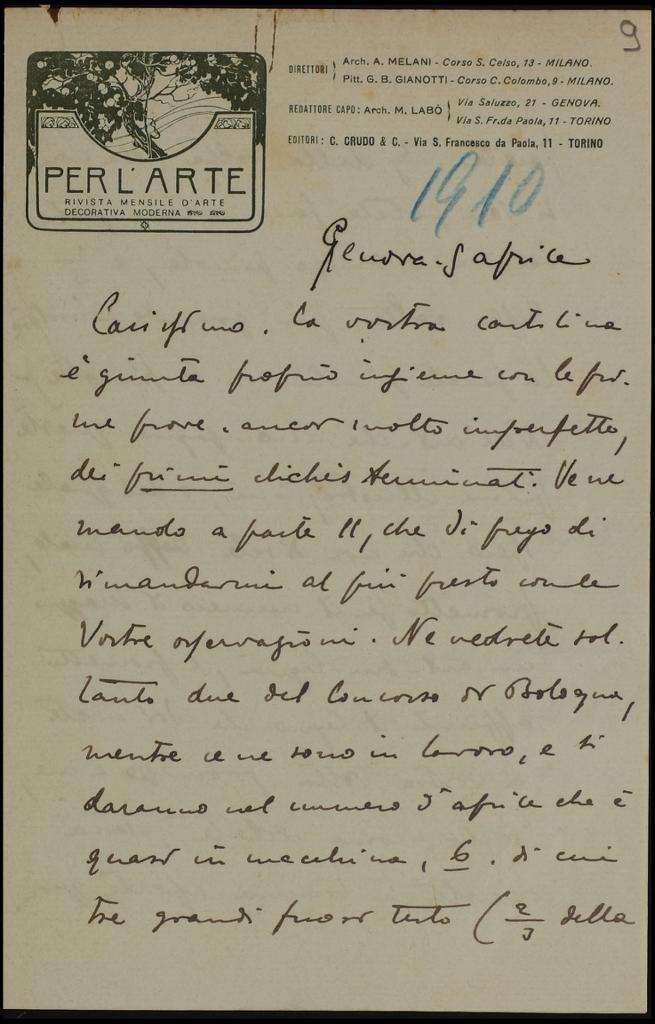 9
DIRETTORI Arch. A. MELANI - Corso S. Celso, 13 - MILANO.
Pitt. G. B. GIANOTTI - Corso C. Colombo, 9 - MILANO.
REDATTORE CAPO: Arch. M. LABÒ Via Saluzzo, 21 - GENOVA.
Via S. Fr. da Paola, 11 - TORINO
EDITORI: C. CRUDO & C. - Via S. Francesco da Paola, 11 - TORINO
PER L'ARTE
RIVISTA MENSILE D'ARTE
DECORATIVA MODERNA
1910
Genova - 5 aprile
Carissimo. La vostra cartolina
è giunta proprio insieme con le pri-
me prove, ancor molto imperfette,
dei primi clichés terminati. Ve ne
mando a parte 11, che Vi prego di
rimandarmi al più presto con le
Vostre osservazioni. Ne vedrete sol-
tanto due del Concorso di Bologna,
mentre ce ne sono in lavoro, e si
daranno nel numero d'aprile che è
quasi in macchina, 6, di cui
tre grandi fuori testo (2/3 della